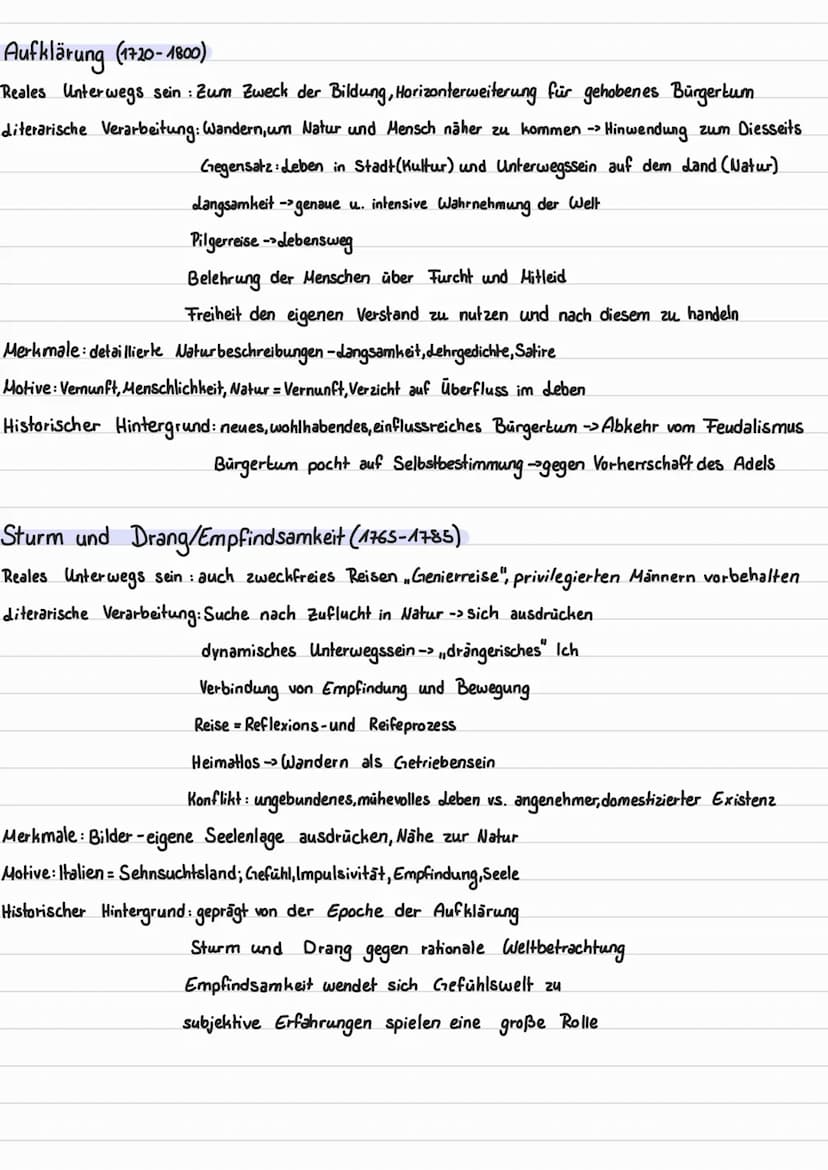 Aufklärung (1720-1800)
Reales Unterwegs sein : Zum Zweck der Bildung, Horizonterweiterung für gehobenes Bürgertum
Literarische Verarbeitung: Wandern, um Natur und Mensch näher zu kommen -> Hinwendung zum Diesseits
Gegensatz: Leben in Stadt (Kultur) und Unterwegssein auf dem Land (Natur)
Langsamkeit -> genaue u. intensive Wahrnehmung der Welt
Pilgerreise -> Lebensweg
Belehrung der Menschen über Furcht und Mitleid
Freiheit den eigenen Verstand zu nutzen und nach diesem zu handeln
Merkmale: detaillierte Naturbeschreibungen - Langsamkeit, Lehrgedichte, Satire
Motive: Vernunft, Menschlichkeit, Natur = Vernunft, Verzicht auf Überfluss im Leben
Historischer Hintergrund: neues, wohlhabendes, einflussreiches Bürgertum -> Abkehr vom Feudalismus
Bürgertum pocht auf Selbstbestimmung -> gegen Vorherrschaft des Adels
Sturm und Drang/Empfindsamkeit (1765-1785)
Reales Unterwegs sein : auch zweckfreies Reisen „Genierreise", privilegierten Männern vorbehalten
Literarische Verarbeitung: Suche nach Zuflucht in Natur -> sich ausdrücken
dynamisches Unterwegssein -> „drängerisches" Ich
Verbindung von Empfindung und Bewegung
Reise = Reflexions- und Reifeprozess
Heimatlos -> Wandern als Getriebensein
Konflikt: ungebundenes, mühevolles Leben vs. angenehmer, domestizierter Existenz
Merkmale: Bilder - eigene Seelenlage ausdrücken, Nähe zur Natur
Motive: Italien = Sehnsuchtsland; Gefühl, Impulsivität, Empfindung, Seele
Historischer Hintergrund: geprägt von der Epoche der Aufklärung
Sturm und Drang gegen rationale Weltbetrachtung
Empfindsamkeit wendet sich Gefühlswelt zu
subjektive Erfahrungen spielen eine große Rolle